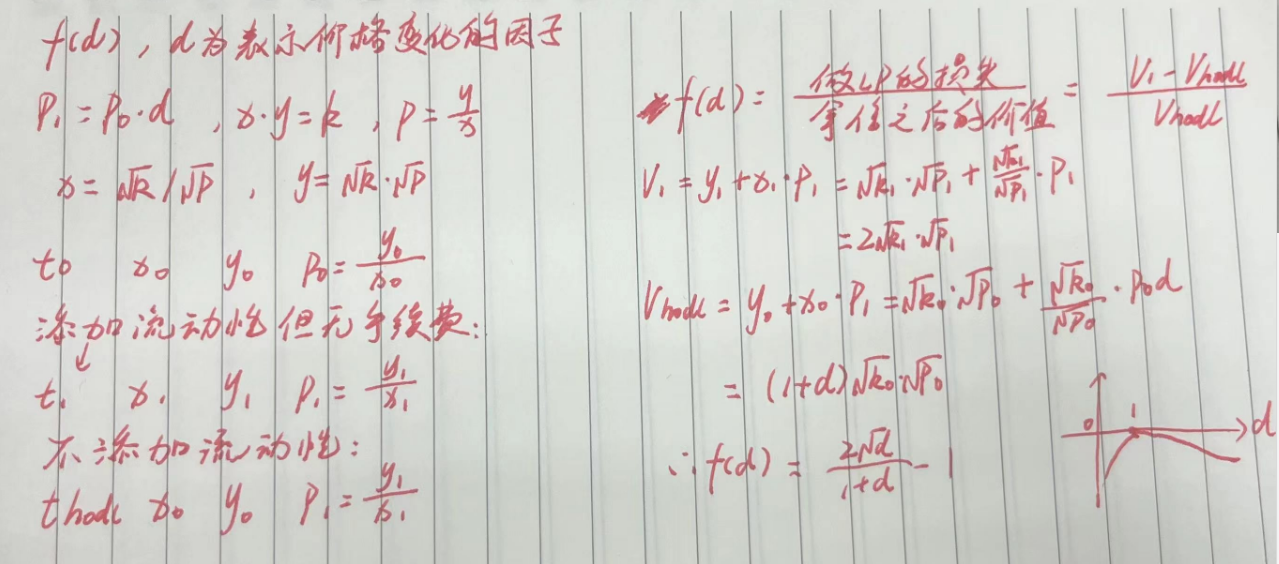 f(d), d为表示价格变化的因子
P₁ = P₀·d , x·y = k , P = y/x
x = √k/√P , y = √k·√P
t₀ x₀ y₀ P₀ = y₀/x₀
添加流动性但无手续费:
↓
t₁ x₁ y₁ P₁ = y₁/x₁
不添加流动性:
t hodl x₀ y₀ P₁ = y₁/x₁
f(d) = 做LP的损失/拿住之后的价值 = (V₁ - Vhodl)/Vhodl
V₁ = y₁ + x₁·P₁ = √k₁·√P₁ + √k₁/√P₁·P₁
= 2√k₁·√P₁
Vhodl = y₀ + x₀·P₁ = √k₀·√P₀ + √k₀/√P₀·P₀d
= (1+d)√k₀·√P₀
∴ f(d) = 2√d/(1+d) - 1
0 1 d